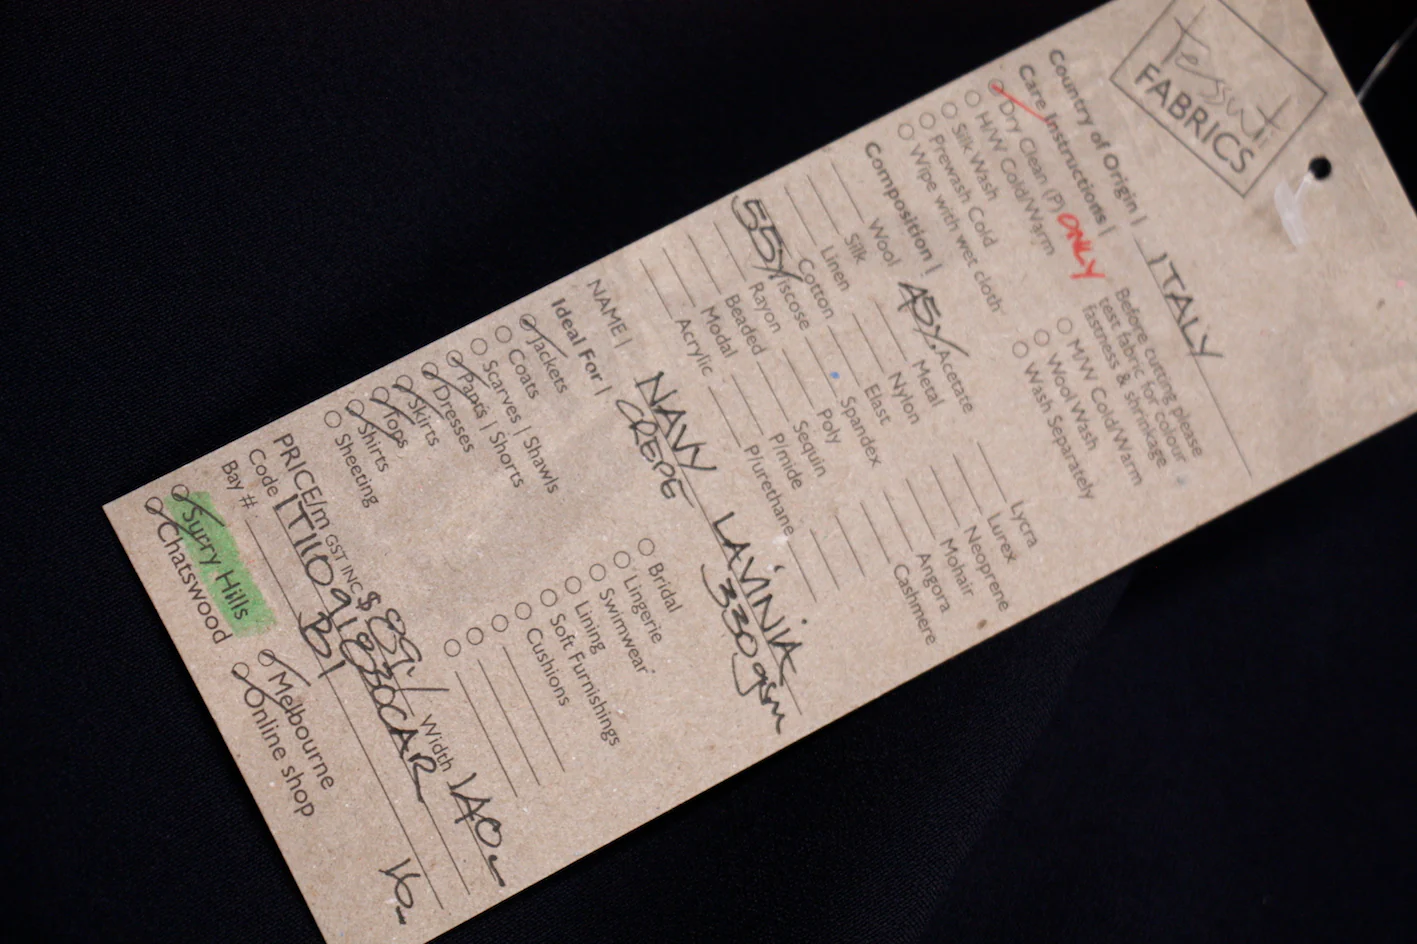 Tessuti
FABRICS
Country of Origin | ITALY
Care Instructions |
Dry Clean (P) ONLY
H/W Cold/Warm
Silk Wash
Prewash Cold
Wipe with wet cloth
Before cutting please
test fabric for colour
fastness & shrinkage
M/W Cold/Warm
Wool Wash
Wash Separately
Composition |
Wool 45% Acetate Lycra
Silk Metal Lurex
Linen Nylon Neoprene
Cotton Elast Mohair
55% Viscose Spandex Angora
Rayon Poly Cashmere
Beaded Sequin
Modal P/mide
Acrylic P/urethane
NAME | NAVY LAVINIA
CREPE 330gsm
Ideal For |
Jackets
Coats
Scarves | Shawls
Pants | Shorts
Dresses
Skirts
Tops
Shirts
Sheeting
Bridal
Lingerie
Swimwear
Lining
Soft Furnishings
Cushions
PRICE/m GST INC $89/ Width 140
Code
Bay # B1
Surry Hills Melbourne
Chatswood Online shop